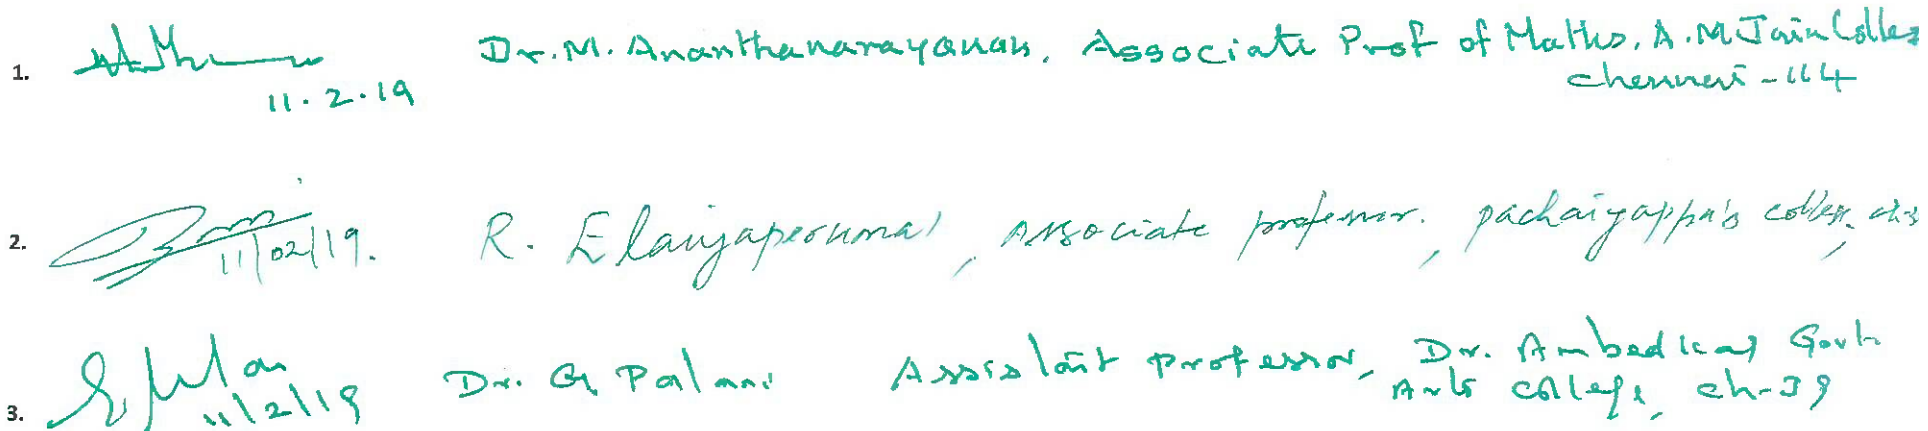 1. 11.2.19 Dr. M. Ananthanarayanan, Associate Prof of Maths. A.M Jain Colleg
Chennai - 114
2. 11/02/19. R. Elaiyaperumal, Associate professor, pachaiyappa's college,
3. 11/2/19 Dr. G Palani Assistant Professor, Dr. Ambedkar Govt
Arts College, ch-39